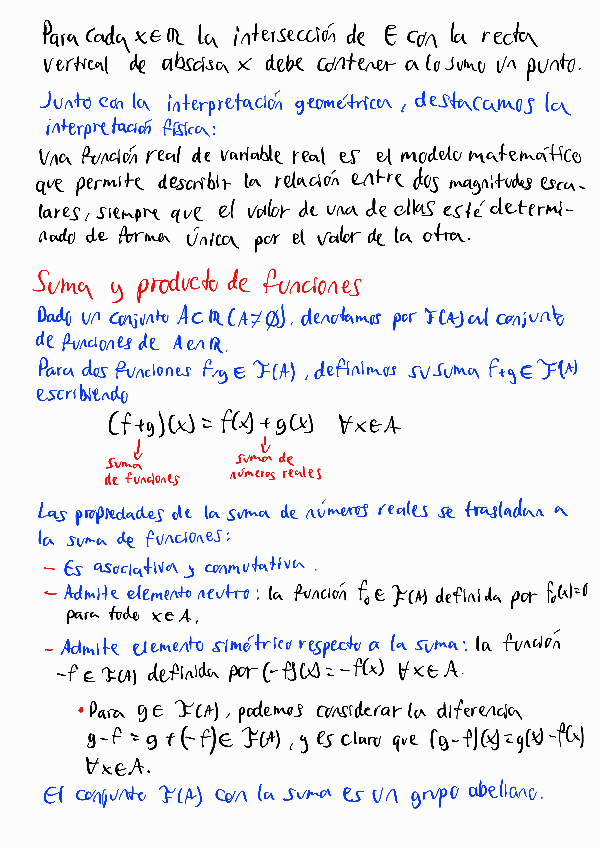 Para cada x∈ℝ la intersección de E con la recta
vertical de abscisa x debe contener a lo sumo un punto.
Junto con la interpretación geométrica, destacamos la
interpretación física:
Una función real de variable real es el modelo matemático
que permite describir la relación entre dos magnitudes esca-
lares, siempre que el valor de una de ellas esté determi-
nado de forma única por el valor de la otra.
Suma y producto de funciones
Dado un conjunto A⊂ℝ (A≠∅), denotamos por F(A) al conjunto
de funciones de A en ℝ.
Para dos funciones f,g ∈ F(A), definimos su suma f+g ∈ F(A)
escribiendo
(f+g)(x) = f(x) + g(x) ∀x∈A
↓ ↓
suma suma de
de funciones números reales
Las propiedades de la suma de números reales se trasladan a
la suma de funciones:
- Es asociativa y conmutativa.
- Admite elemento neutro: la función f₀ ∈ F(A) definida por f₀(x)=0
para todo x∈A.
- Admite elemento simétrico respecto a la suma: la función
-f ∈ F(A) definida por (-f)(x) = -f(x) ∀x∈A.
• Para g∈ F(A), podemos considerar la diferencia
g-f = g+(-f)∈ F(A), y es claro que (g-f)(x)=g(x)-f(x)
∀x∈A.
El conjunto F(A) con la suma es un grupo abeliano.